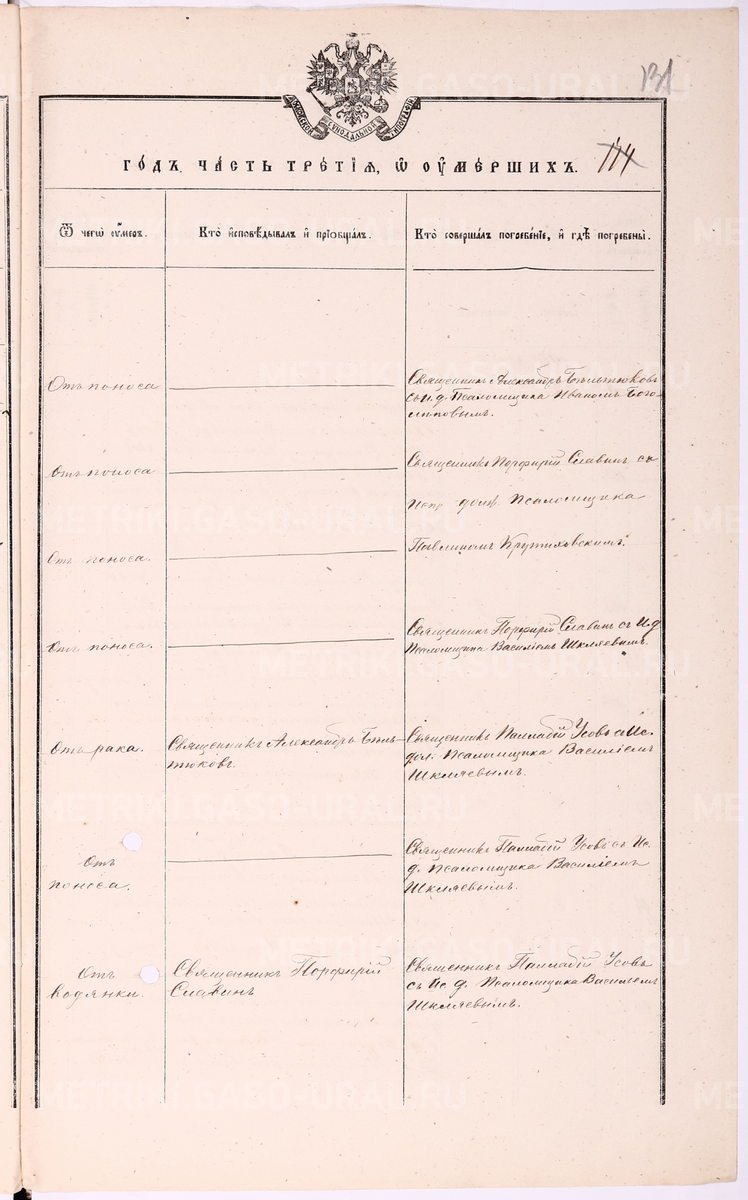 131
МОСКОВСКОЙ СѴНОДАЛЬНОЙ ТИПОГРАФІИ
ГОДЪ. ЧАСТЬ ТРЕТІЯ, Ѡ ОУМЕРШИХЪ. 114
Ѿ чегѡ оумеръ.
Кто исповѣдывалъ и пріобщалъ.
Кто совершалъ погребеніе, и гдѣ погребены.
Отъ поноса
Священникъ Александръ Бѣльтюковъ
съ и. д. Псаломщика Иваномъ Бого-
Отъ поноса
Священникъ Порфирій Славинъ съ
исп. долж. Псаломщика
Отъ поноса.
Павлиномъ Крутиховскимъ.
Отъ поноса.
Священникъ Порфирій Славинъ съ И. д
Псаломщика Василіемъ Шкляевымъ.
Отъ рака.
Священникъ Александръ Бѣль-
тюковъ.
Священникъ Палладій Усовъ с Ис.
дол. Псаломщика Василіемъ
Шкляевымъ.
Отъ
поноса.
Священникъ Палладій Усовъ съ Ис.
д. Псаломщика Василіемъ
Шкляевымъ.
Отъ
водянки.
Священникъ Порфирій
Славинъ
Священникъ Палладій Усовъ
съ Ис. д. Псаломщика Васильемъ
Шкляевымъ.
METRIKI.GASO-URAL.RU